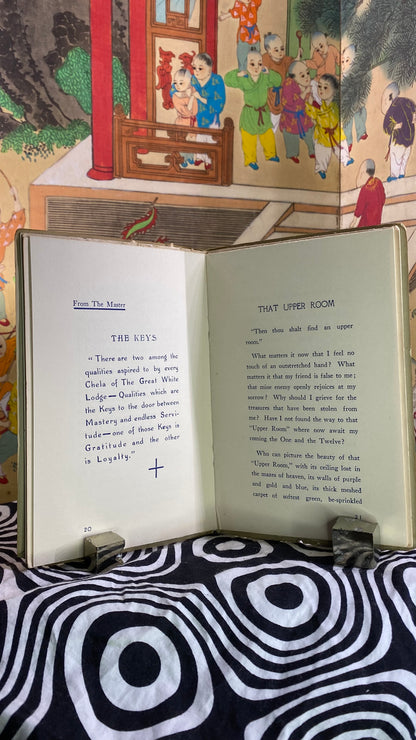 From The Master
THE KEYS.
"There are two among the
qualities aspired to by every
Chela of The Great White
Lodge—Qualities which are
the Keys to the door between
Mastery and endless Servi-
tude—one of those Keys is
Gratitude and the other
is Loyalty."
20
THAT UPPER ROOM
"Then thou shalt find an upper
room."
What matters it now that I feel no
touch of an outstretched hand? What
matters it that my friend is false to me;
that mine enemy openly rejoices at my
sorrow? Why should I grieve for the
treasures that have been stolen from
me? Have I not found the way to that
"Upper Room" where now await my
coming the One and the Twelve?
Who can picture the beauty of that
"Upper Room," with its ceiling lost in
the mazes of heaven, its walls of purple
and gold and blue, its thick meshed
carpet of softest green, be-sprinkled